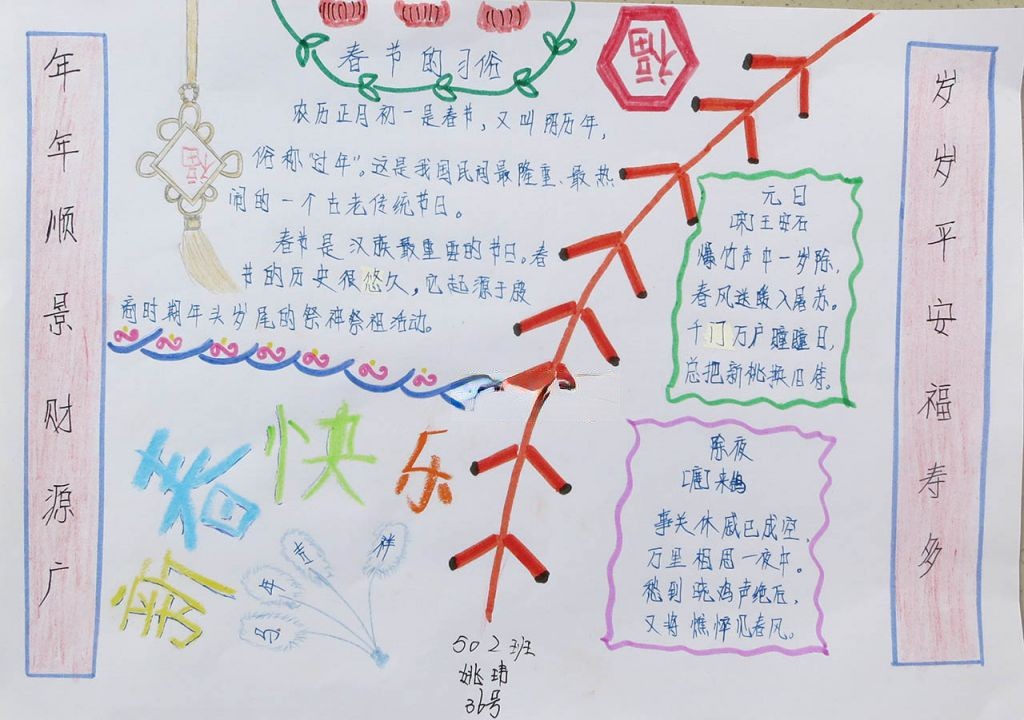 年年顺景财源广
春节的习俗
福
福
农历正月初一是春节,又叫阴历年,
俗称"过年"。这是我国民间最隆重、最热
闹的一个古老传统节日。
春节是汉族最重要的节日。春
节的历史很悠久,它起源于殷
商时期年头岁尾的祭神祭祖活动。
元日
[宋]王安石
爆竹声中一岁除,
春风送暖入屠苏。
千门万户瞳瞳日,
总把新桃换旧符。
新春快乐
马年吉祥
除夜
[唐]来鹄
事关休戚已成空,
万里相思一夜中。
愁到晓鸡声绝后,
又将憔悴见春风。
502班
姚玮
36号
岁岁平安福寿多